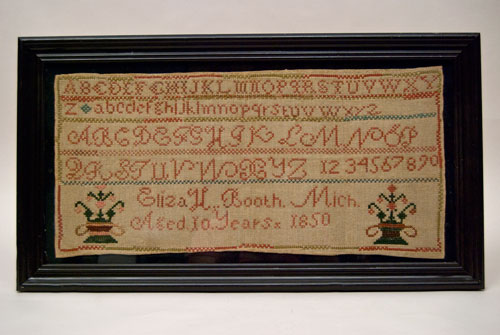 ABCDEFGHIJKLMNOPQRSTUVWXY
Z abcdefghijklmnopqrstuvwxyz
ABCDEFGHIJKLMNOP
QRSTUVWXYZ 1234567890
Eliza H. Booth. Mich.
Aged 10 Years 1850